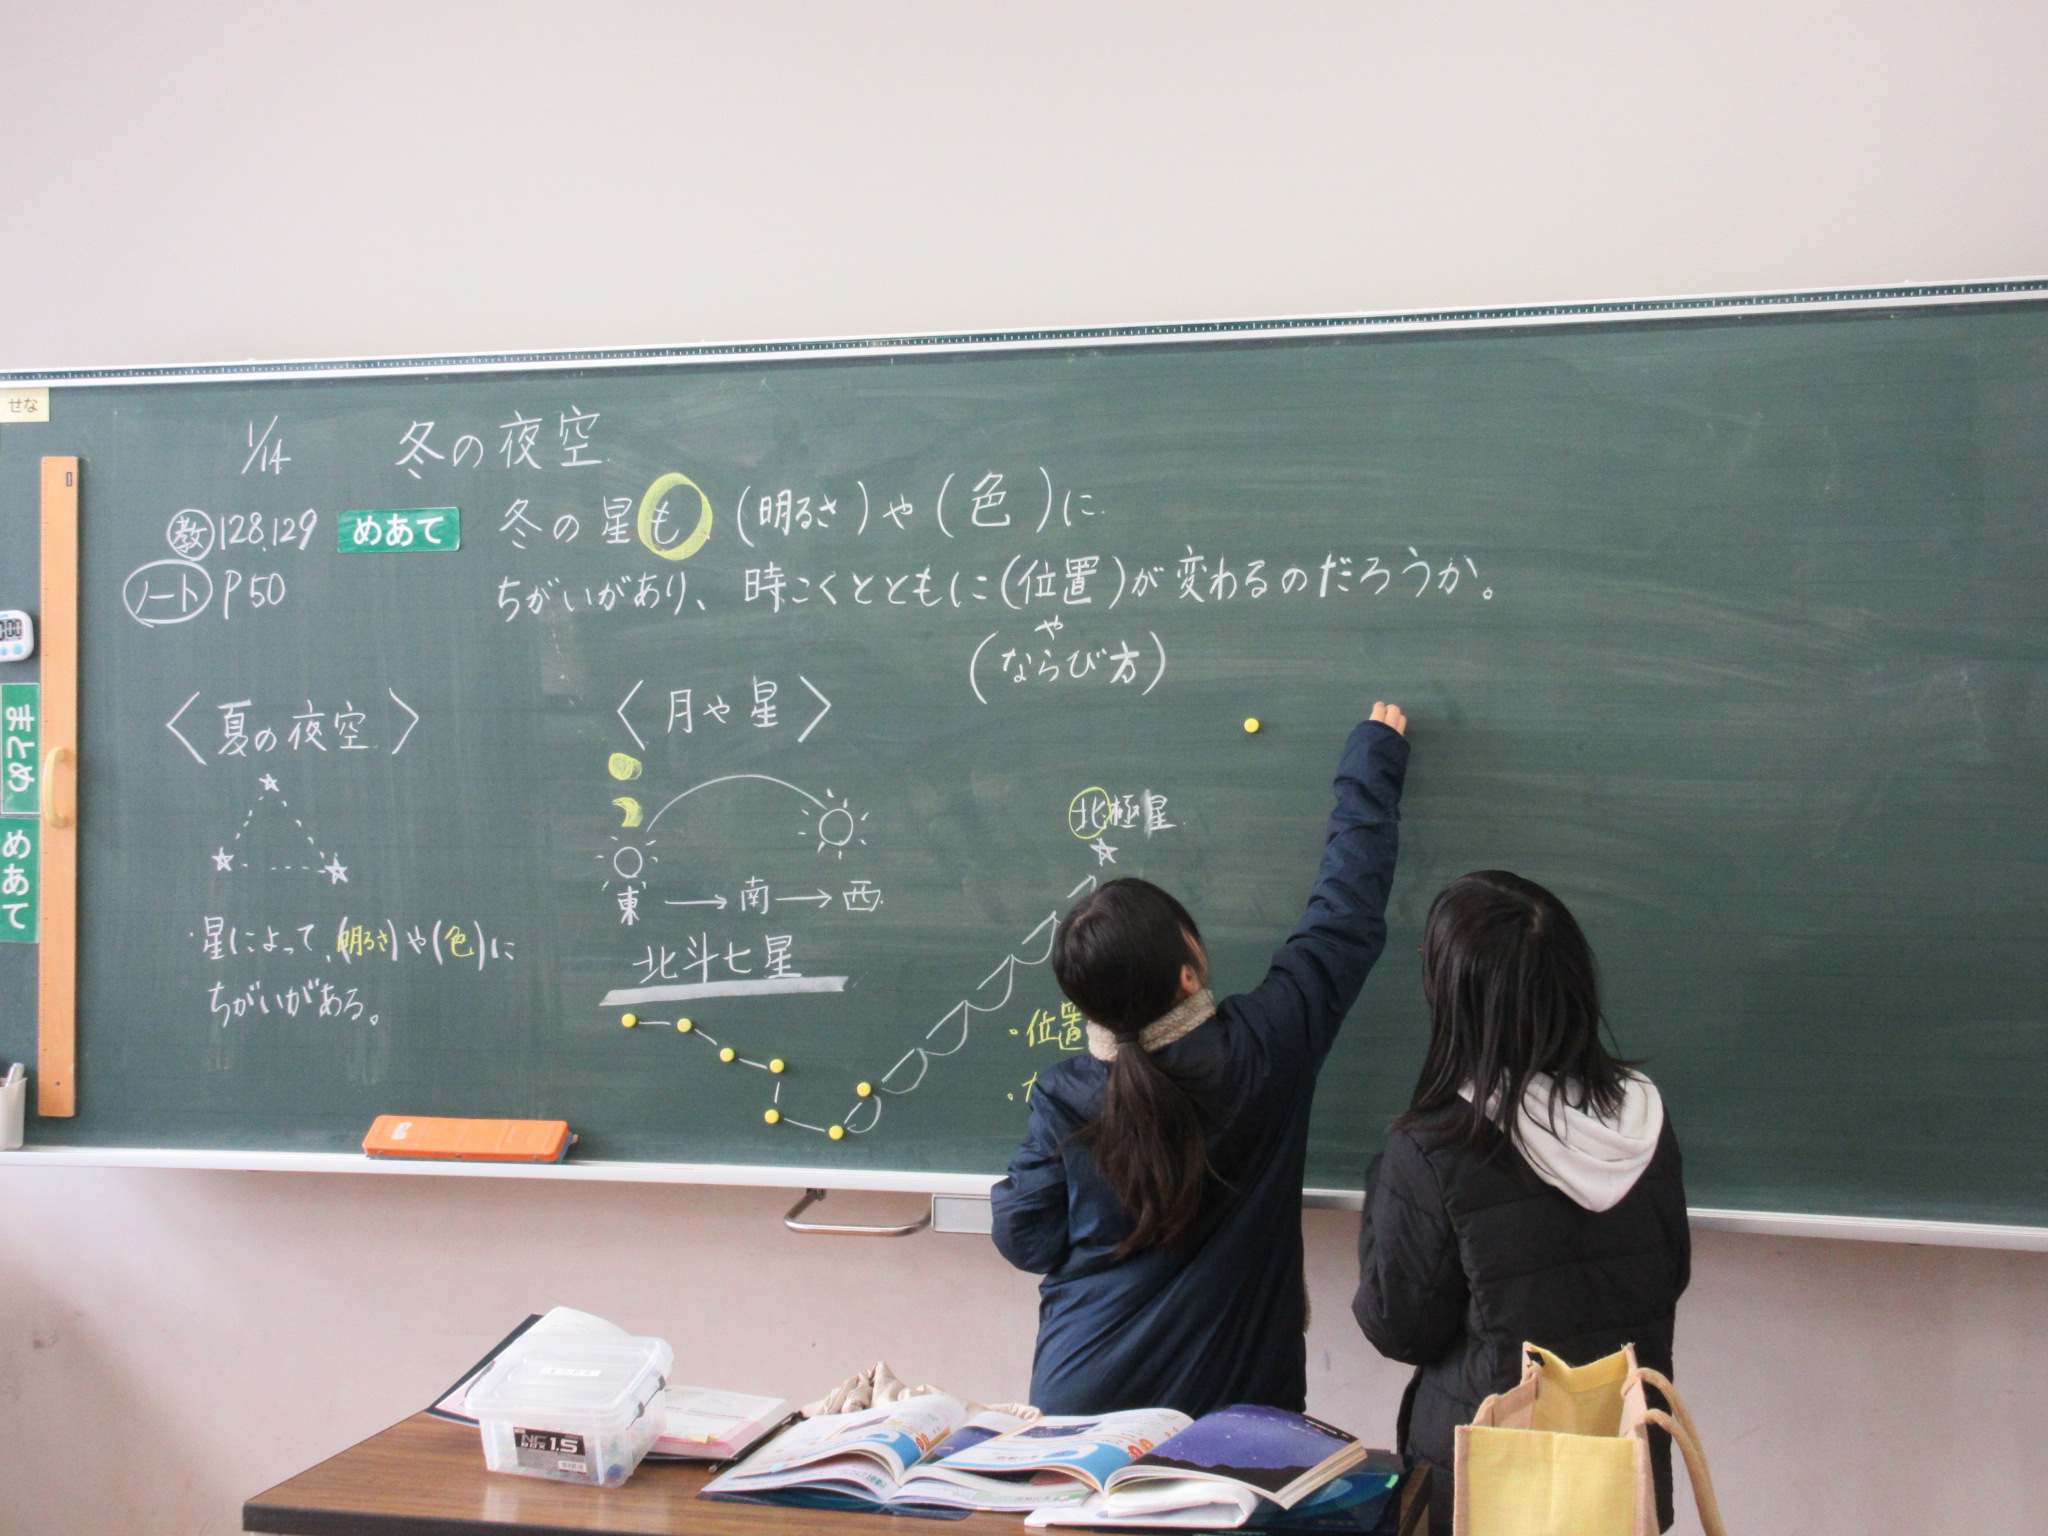 せな
1/14 冬の夜空
教 128.129 めあて 冬の星も(明るさ)や(色)に
ノート P50 ちがいがあり、時こくとともに(位置)が変わるのだろうか。
や
(ならび方)
まとめ
めあて
〈夏の夜空〉
・星によって、(明るさ)や(色)に
ちがいがある。
〈月や星〉
東→南→西
北斗七星
北極星
・位置
NC BOX 1.5